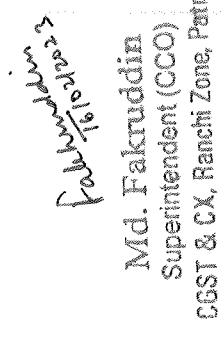 Fakhruddin
16/02/2023
Md. Fakruddin
Superintendent (CCO)
CGST & CX, Ranchi Zone,